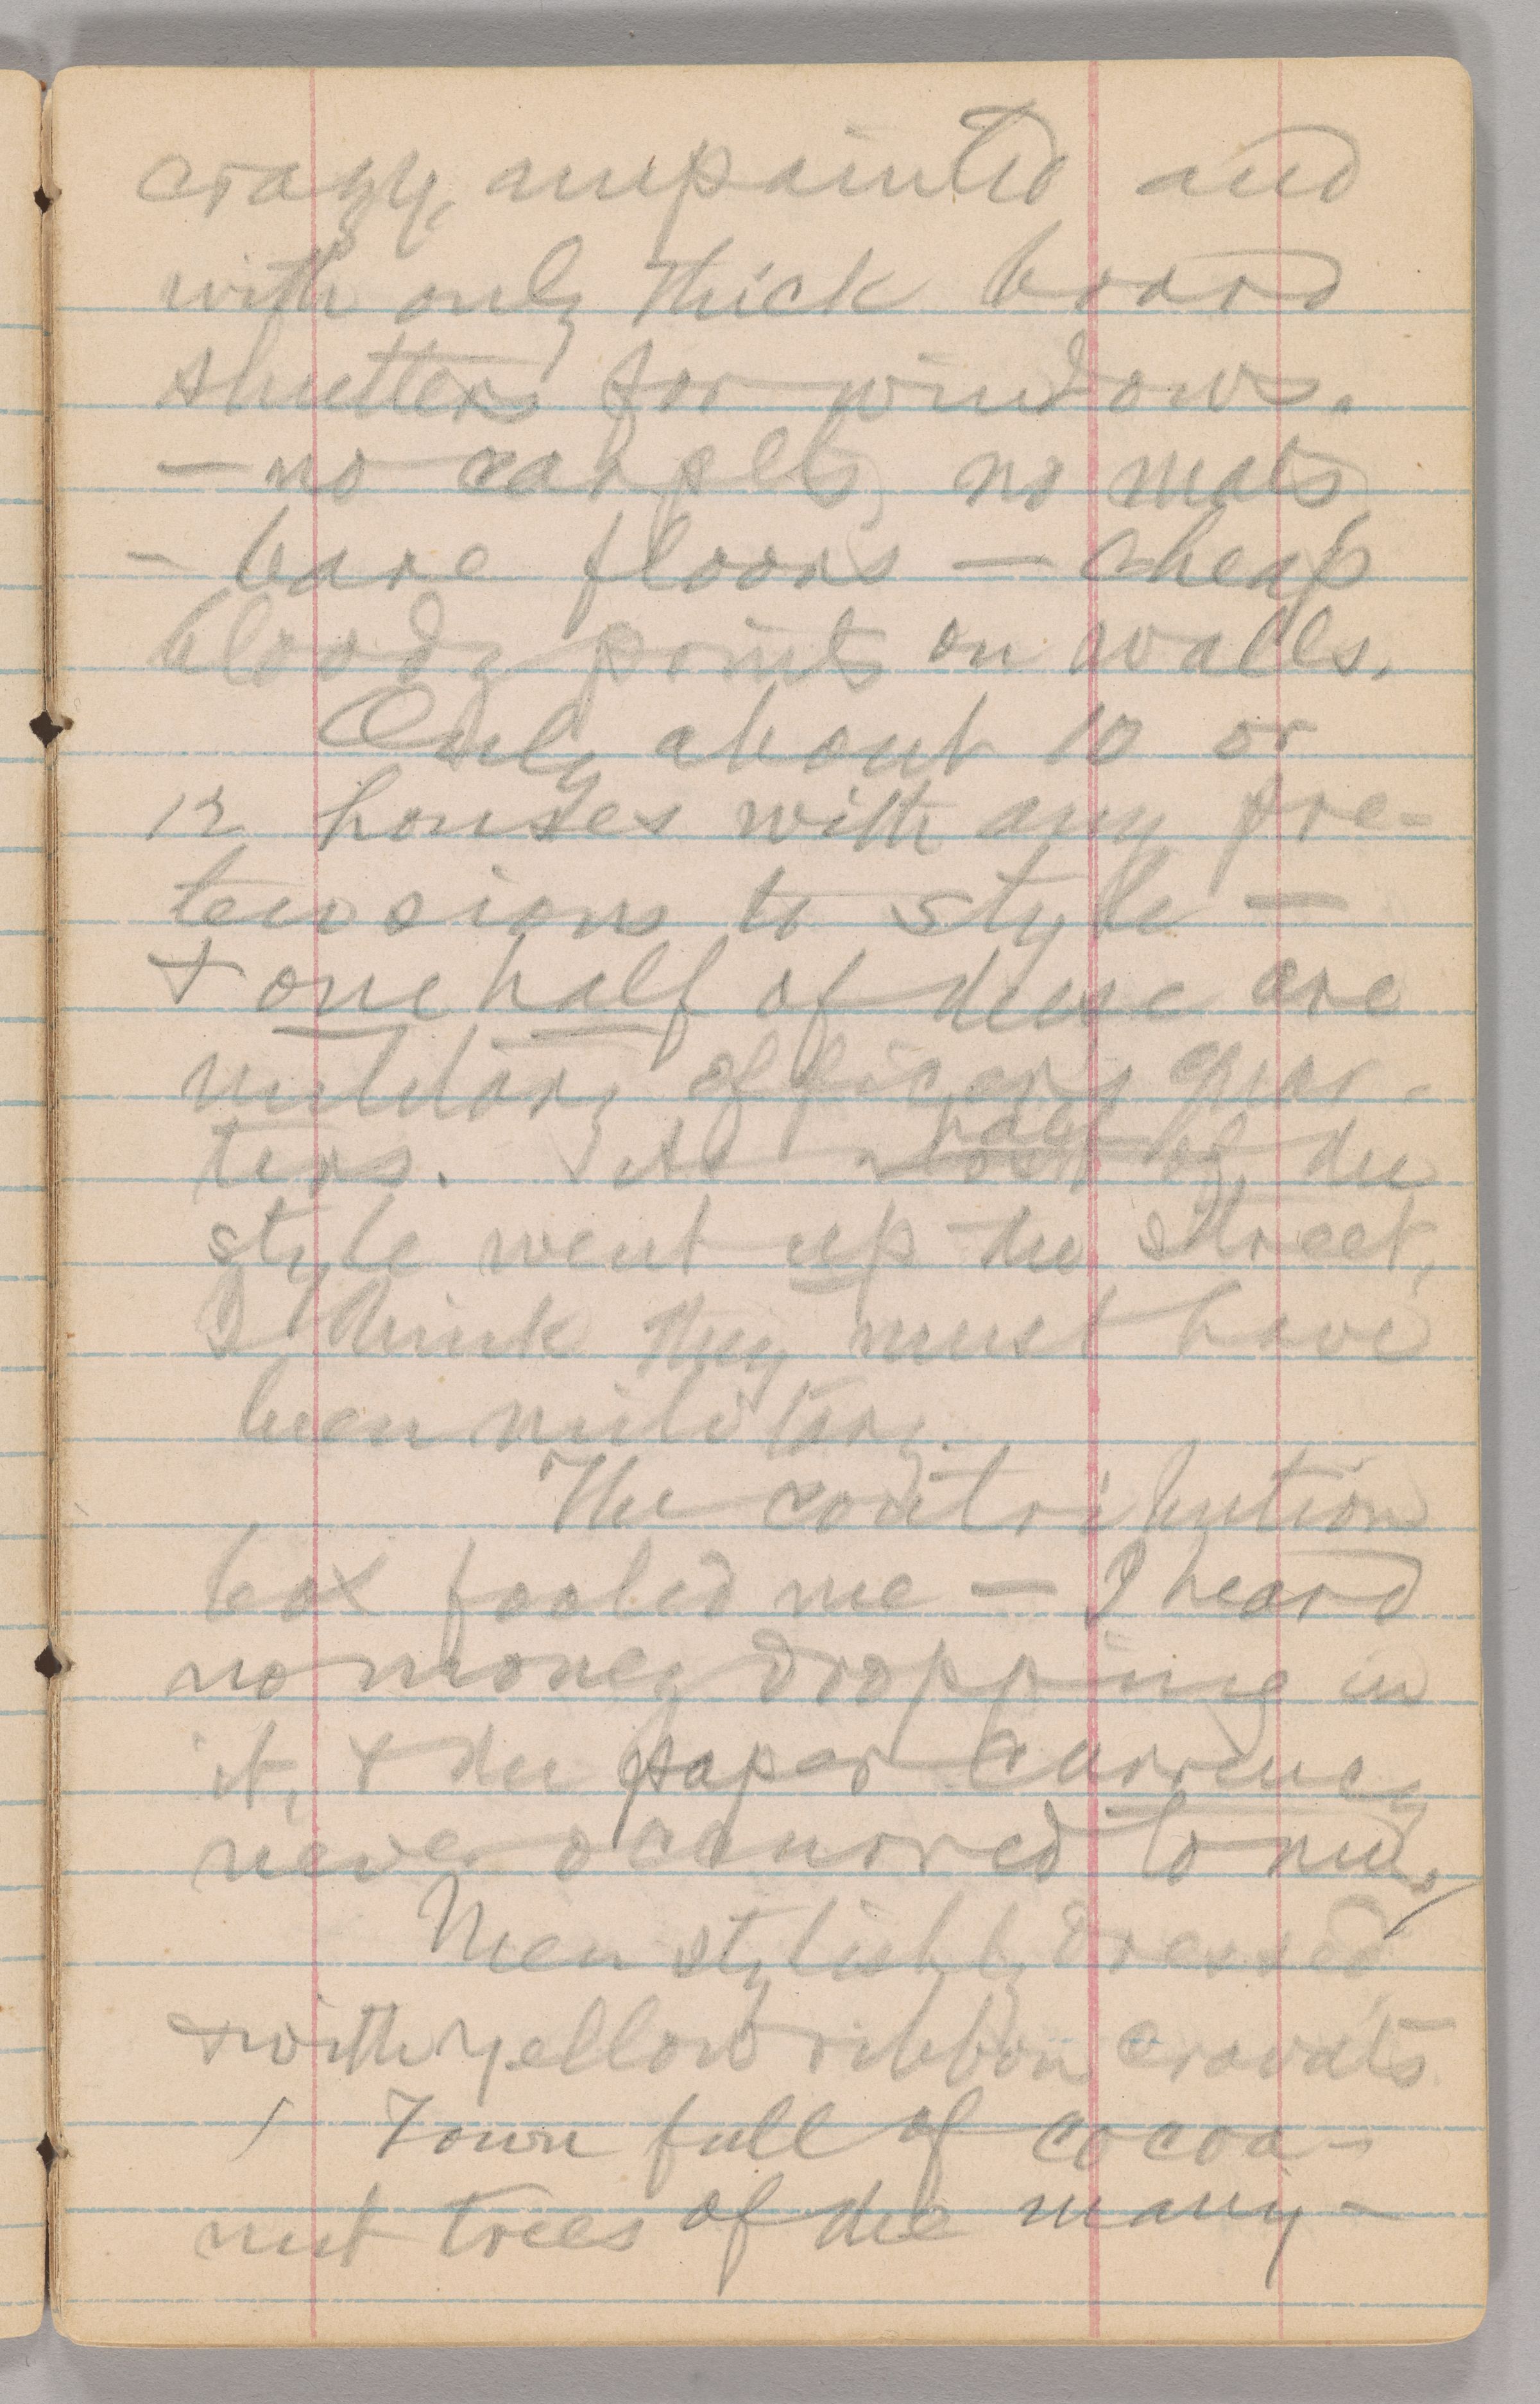 crazy, unpainted and
with only thick board
shutters for windows.
— no carpets, no mats,
— bare floors — cheap
bloody prints on walls.
Only about 10 or
12 houses with any pre-
tensions to style —
& one half of these are
military officers quar-
ters. As most half of the
style went up the street,
I think they must have
been military.
The contribution
box fooled me — I heard
no money dropping in
it, & the paper currency
never occurred to me.
Men stylishly dressed,
& with yellow ribbon cravats
/ Town full of cocoa-
nut trees of the many-